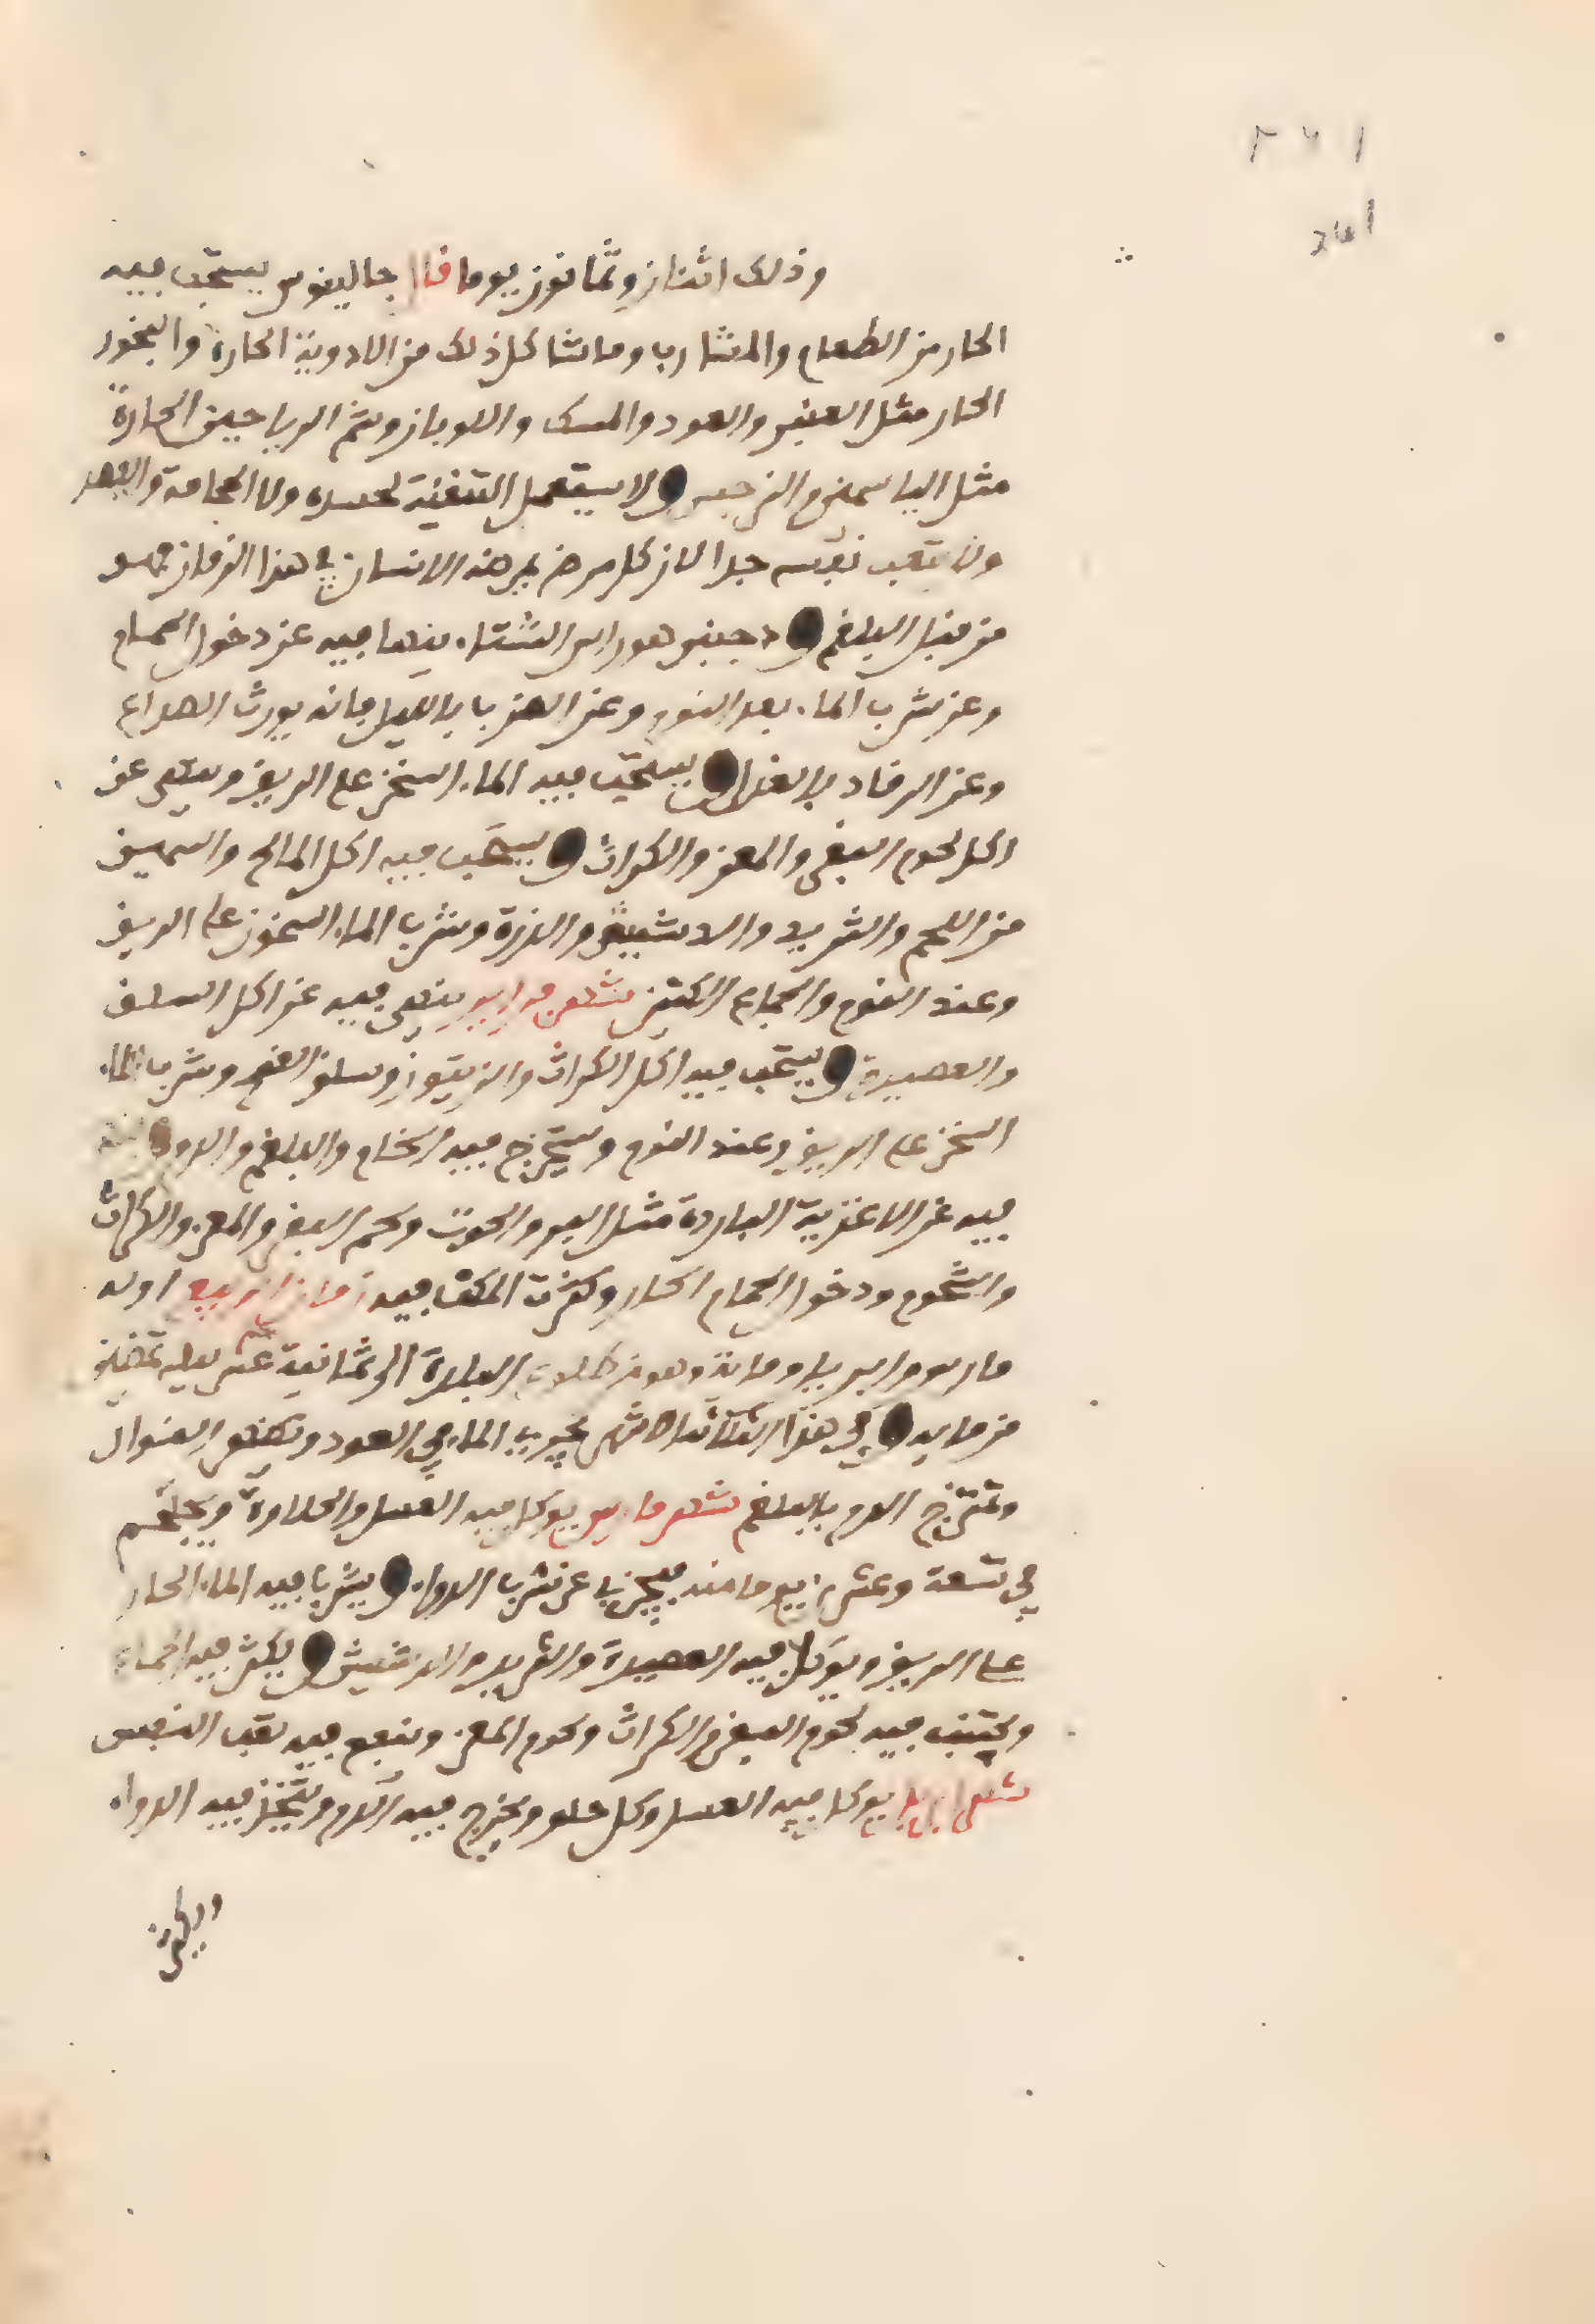 وذلك اثنان وثمانون يوما قال جالينوس يستحب فيه
الحار من الطعام والمشارب وما شاكل ذلك من الادوية الحارة والبخور
الحار مثل العنبر والعود والمسك واللوبان وشم الرياحين الحارة
مثل الياسمين والنرجس ولا يستعمل التنقية لجسده ولا الحجامة والفصد
ولا يتعب نفسه جدا لان كل مرض يمرضه الانسان في هذا الزمان فهو
من قبل البلغم ودجنبر هو راس الشتاء ينها فيه عن دخول الحمام
وعن شرب الماء بعد النوم وعن الضرب بالليل فانه يورث الصداع
وعن الرقاد بالغد ويستحب فيه الماء السخن على الريق وينهى عن
اكل لحوم البقر والمعز والكراث ويستحب فيه اكل المالح والسمين
من اللحم والثريد والدشيش والذرة وشرب الماء السخون على الريق
وعند النوم والجماع الكثير شهر فبراير ينهى فيه عن اكل السلق
والعصيدة ويستحب فيه اكل الكراث والزيتون وسلق الفجم وشرب الماء
السخن على الريق وعند النوم ويستخرج فيه الخام والبلغم والدود
فيه عن الاغذية الباردة مثل البر والحوت ولحم البقر والمعز والكراث
والشحوم ودخول الحمام الحار وكثرت المكث فيه زمان الربيع اوله
مارس وابريل ومايه وهو من البلدة الى ثمانية عشر ليلة تمضين
من مايه وفي هذا الثلاثة الاشهر يجري الماء في العود
وتمتزج الدم بالبلغم شهر مارس يوكل فيه العسل والحلاوة ويحتجم
في تسعة وعشرين يوما منه فيجزي عن شرب الدواء ويشرب فيه الماء الحار
على الريق ويوكل فيه العصيدة والثريد والدشيش ويكثر فيه الجماع
ويجتنب فيه لحوم البقر والكراث ولحوم المعز وينفع فيه تعب النفس
شهر ابريل يوكل فيه العسل وكل حلو ويخرج فيه الدم ويتخذ فيه الدواء